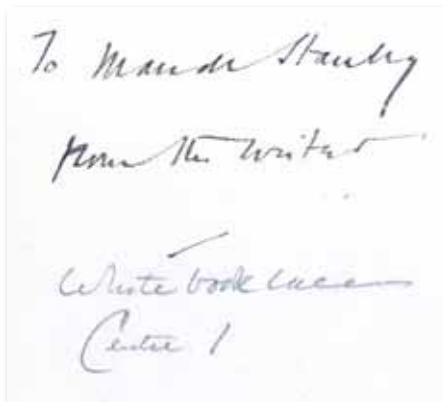 To Maude Stanley
from the writer
White book case
Centre 1